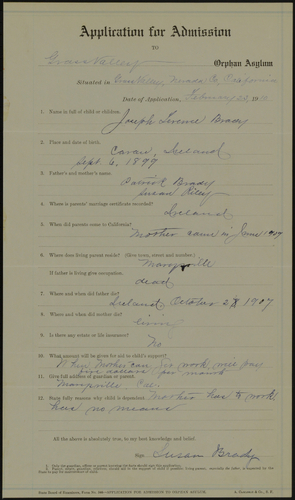 Application for Admission
TO
Grass Valley Orphan Asylum
Situated in Grass Valley, Nevada Co, California
Date of Application, February 191
1. Name in full of child or children.
Joseph Terence Brady
2. Place and date of birth.
Cavan, Ireland
Sept. 6, 1897
3. Father's and mother's name.
Patrick Brady
Susan
4. Where is parents' marriage certificate recorded?
Ireland
5. When did parents come to California?
Mother came in June 1907
6. Where does living parent reside? (Give town, street and number.)
Marysville
If father is living give occupation.
dead
7. Where and when did father die?
Ireland October 1907
8. Where and when did mother die?
living
9. Is there any estate or life insurance?
No
10. What amount will be given for aid in child's support?
mother can work will pay
five dollars per month
11. Give full address of guardian or parent.
Marysville Cal
12. State fully reasons why child is dependent. Mother has to work
has no means
All the above is absolutely true, to my best knowledge and belief.
Sign Susan Brady